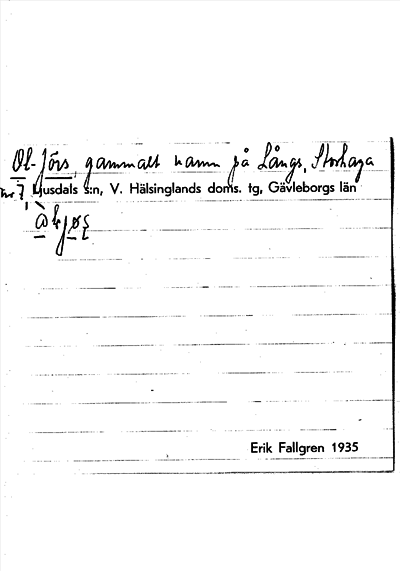 Ol-Jörs, gammalt namn på Långs, Storhaga
nr 7, Ljusdals s:n, V. Hälsinglands doms. tg, Gävleborgs län
Erik Fallgren 1935